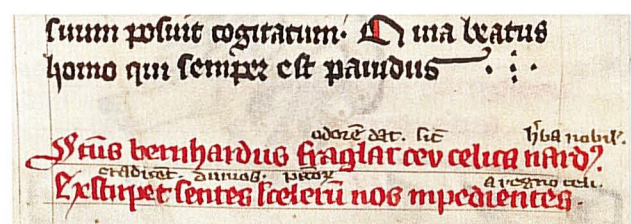 suum posuit cogitatum· Quia beatus
homo qui semper est pauidus
odorē dat· sic̄ h̓ba nobil'
Sctūs bernhardus fraglat ceu celica nard'
eradicet· dumos· pctoꝝ a regno celi·
Exstirpet sentes scelerū nos inpedientes·